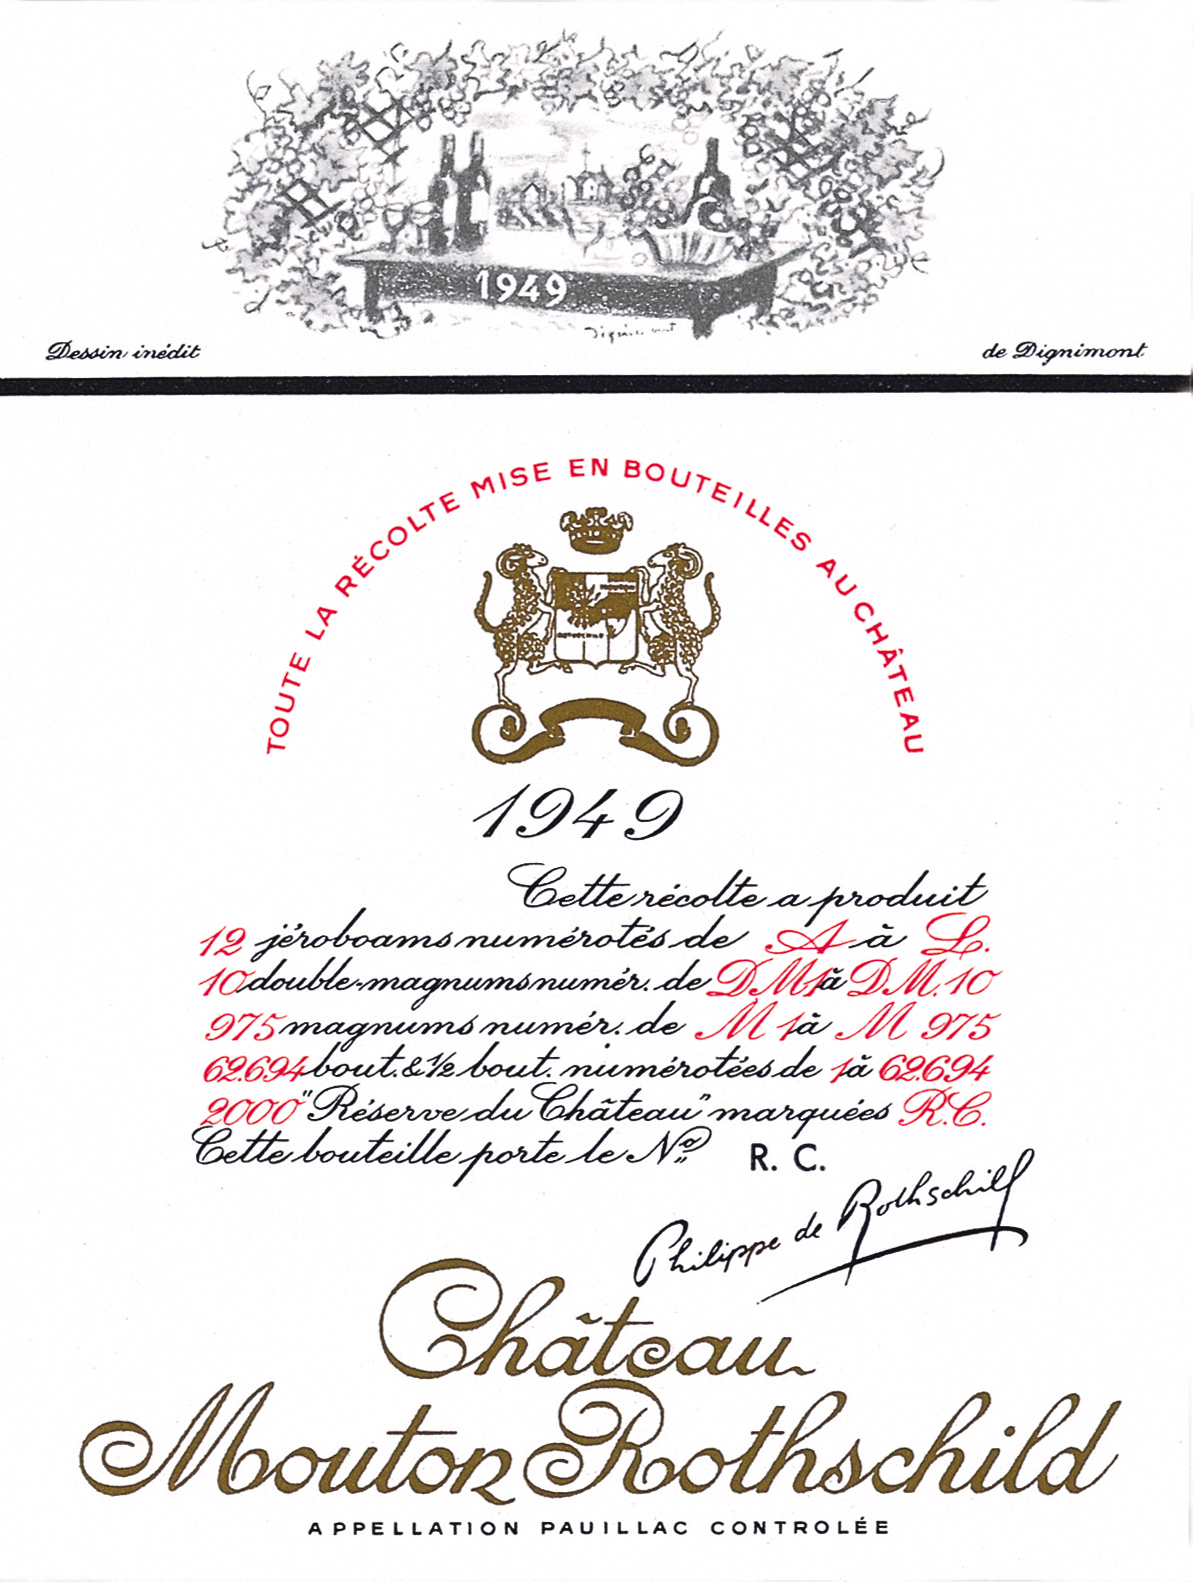 1949
Dignimont
Dessin inédit
de Dignimont
TOUTE LA RÉCOLTE MISE EN BOUTEILLES AU CHÂTEAU
1949
Cette récolte a produit
12 jéroboams numérotés de A à L.
10 double-magnums numér. de DM1 à DM.10
975 magnums numér. de M 1 à M 975
62.694 bout. & ½ bout. numérotées de 1 à 62.694
2000 "Réserve du Château" marquées R.C.
Cette bouteille porte le Nº R. C.
Philippe de Rothschild
Château
Mouton Rothschild
APPELLATION PAUILLAC CONTROLÉE